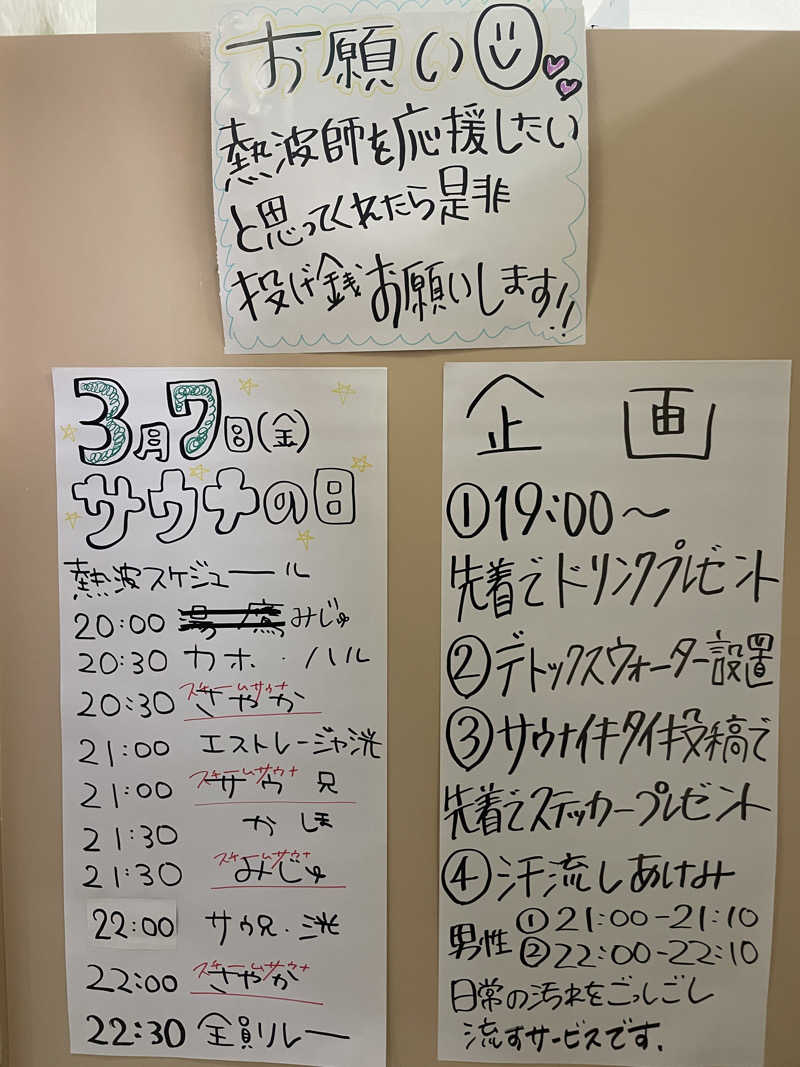 お願い
熱波師を応援したい
と思ってくれたら是非
投げ銭お願いします!!
3月7日(金)
サウナの日
熱波スケジュール
20:00 みじゅ
20:30 カホ・ハル
スチームサウナ
20:30 さやか
21:00 エストレージャ洸
スチームサウナ
21:00 サウ兄
21:30 かほ
スチームサウナ
21:30 みじゅ
22:00 サウ兄・洸
スチームサウナ
22:00 さやか
22:30 全員リレー
企画
①19:00〜
先着でドリンクプレゼント
②デトックスウォーター設置
③サウナイキタイ投稿で
先着でステッカープレゼント
④汗流しあけみ
男性 ①21:00-21:10
②22:00-22:10
日常の汚れをごっしごし
流すサービスです.